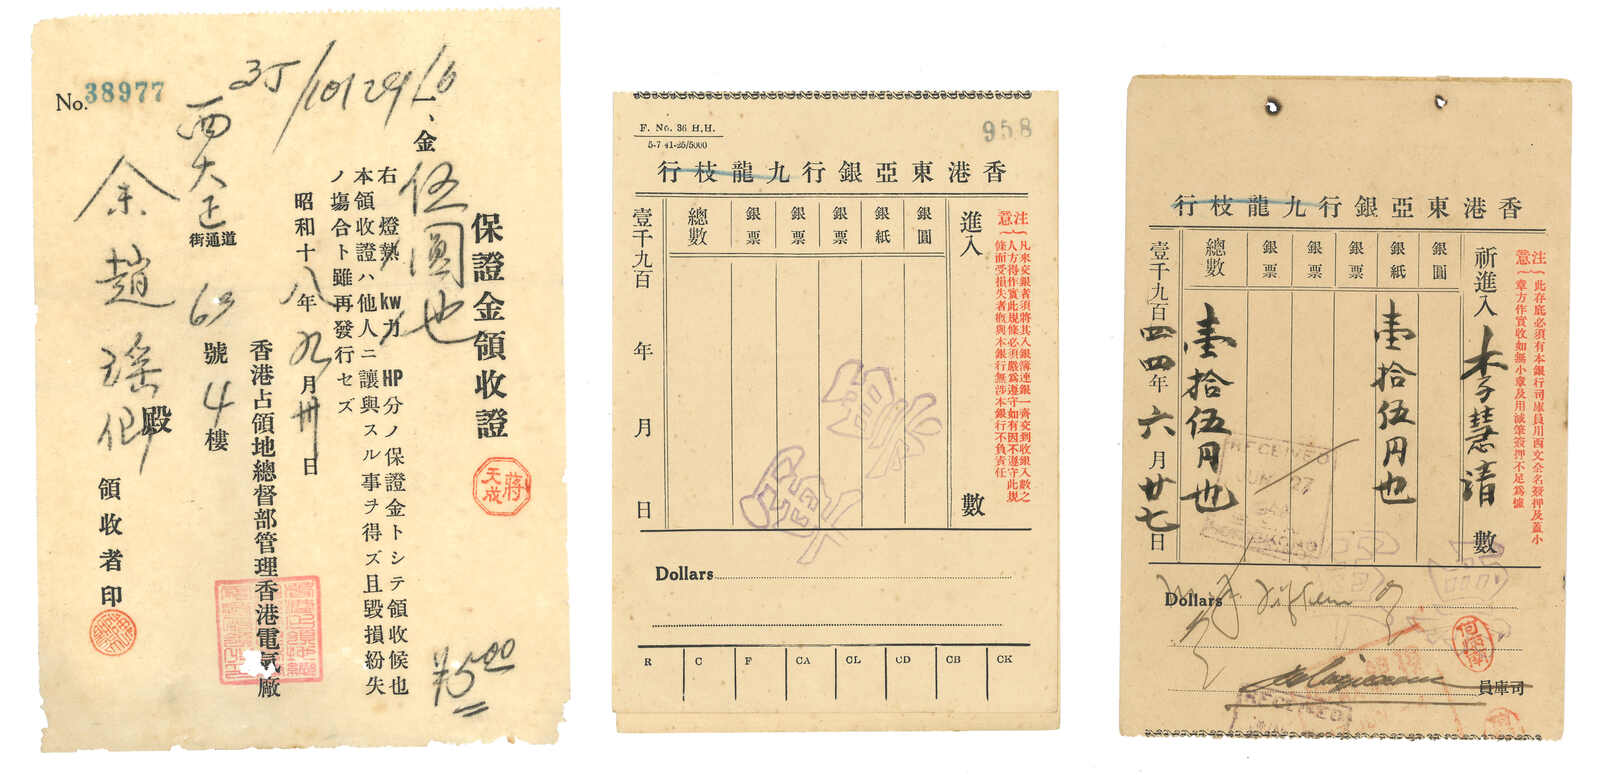 No. 38977
35/10129/6
保證金領收證
一、金伍圓也
右燈熱kw力HP分ノ保證金トシテ領收候也
本領收證ハ他人ニ讓與スル事ヲ得ズ且毀損紛失
ノ場合ト雖再發行セズ
昭和十八年九月卅日
香港占領地總督部管理香港電氣廠
西大正街通道63號4樓
余趙瑤卿殿
領收者印
蔣天成
¥5.00
F. No. 36 H.H.
5-7 41-25/5000
958
香港東亞銀行九龍枝行
注意
凡來交銀者須將其入銀簿連銀一齊交到收銀入數之
人方得作實此規條必須嚴爲遵守如有因不遵守此規
條而受損失者概與本銀行無涉本銀行不負責任
進入 數
銀圓
銀紙
銀票
銀票
銀票
總數
壹千九百 年 月 日
Dollars
R C F CA CL CD CB CK
香港東亞銀行九龍枝行
注意
此存底必須有本銀行司庫員用西文全名簽押及蓋小
章方作實收如無小章及用減筆簽押不足爲據
祈進入李慧清數
銀圓
銀紙 壹拾伍円也
銀票
銀票
銀票
總數 壹拾伍円也
壹千九百四四年六月廿七日
RECEIVED
JUN 27
Dollars Fifteen
司庫員
RECEIVED